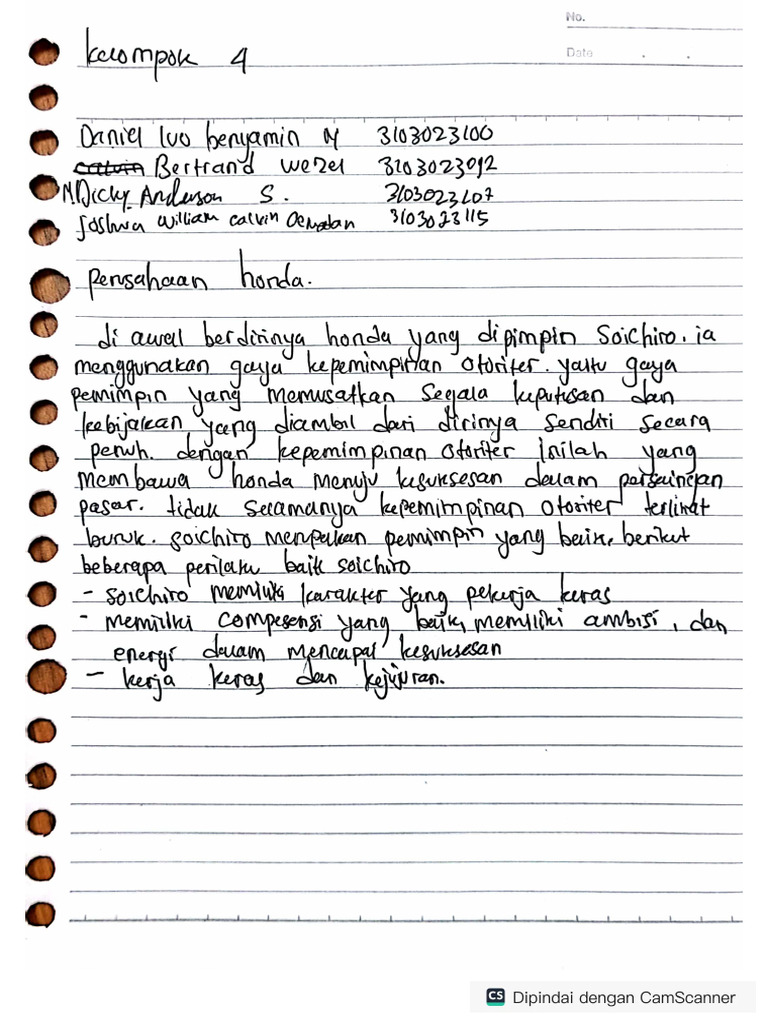 No.
Date
Kelompok 4
Daniel Ivo benyamin M 3103023100
Bertrand Wezel 3103023092
M.Dicky Anderson S. 3103023107
Joshua William Calvin 3103023115
perusahaan honda.
di awal berdirinya honda yang dipimpin Soichiro. ia
menggunakan gaya kepemimpinan otoriter. yaitu gaya
pemimpin yang memusatkan segala keputusan dan
kebijakan yang diambil dari dirinya sendiri secara
penuh. dengan kepemimpinan otoriter inilah yang
membawa honda menuju kesuksesan dalam persaingan
pasar. tidak selamanya kepemimpinan otoriter terlihat
buruk. soichiro merupakan pemimpin yang baik, berikut
beberapa perilaku baik soichiro
- soichiro memiliki karakter yang pekerja keras
- memiliki compesensi yang baik, memiliki ambisi, dan
energi dalam mencapai kesuksesan
- kerja keras dan kejujuran.
CS Dipindai dengan CamScanner